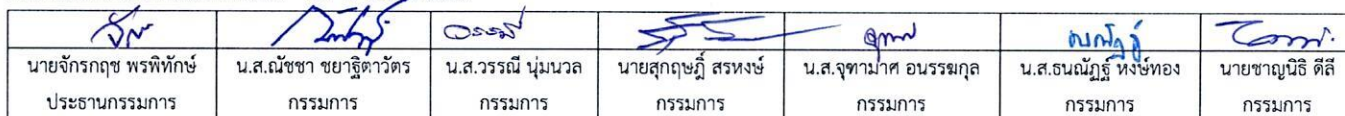 นายจักรกฤช พรพิทักษ์ น.ส.ณัชชา ชยาฐิตาวัตร น.ส.วรรณี นุ่มนวล นายสุกฤษฎิ์ สรหงษ์ น.ส.จุฑามาศ อนรรฆกุล น.ส.ธนณัฏฐ์ หงษ์ทอง นายชาญนิธิ ดีลี
ประธานกรรมการ กรรมการ กรรมการ กรรมการ กรรมการ กรรมการ กรรมการ